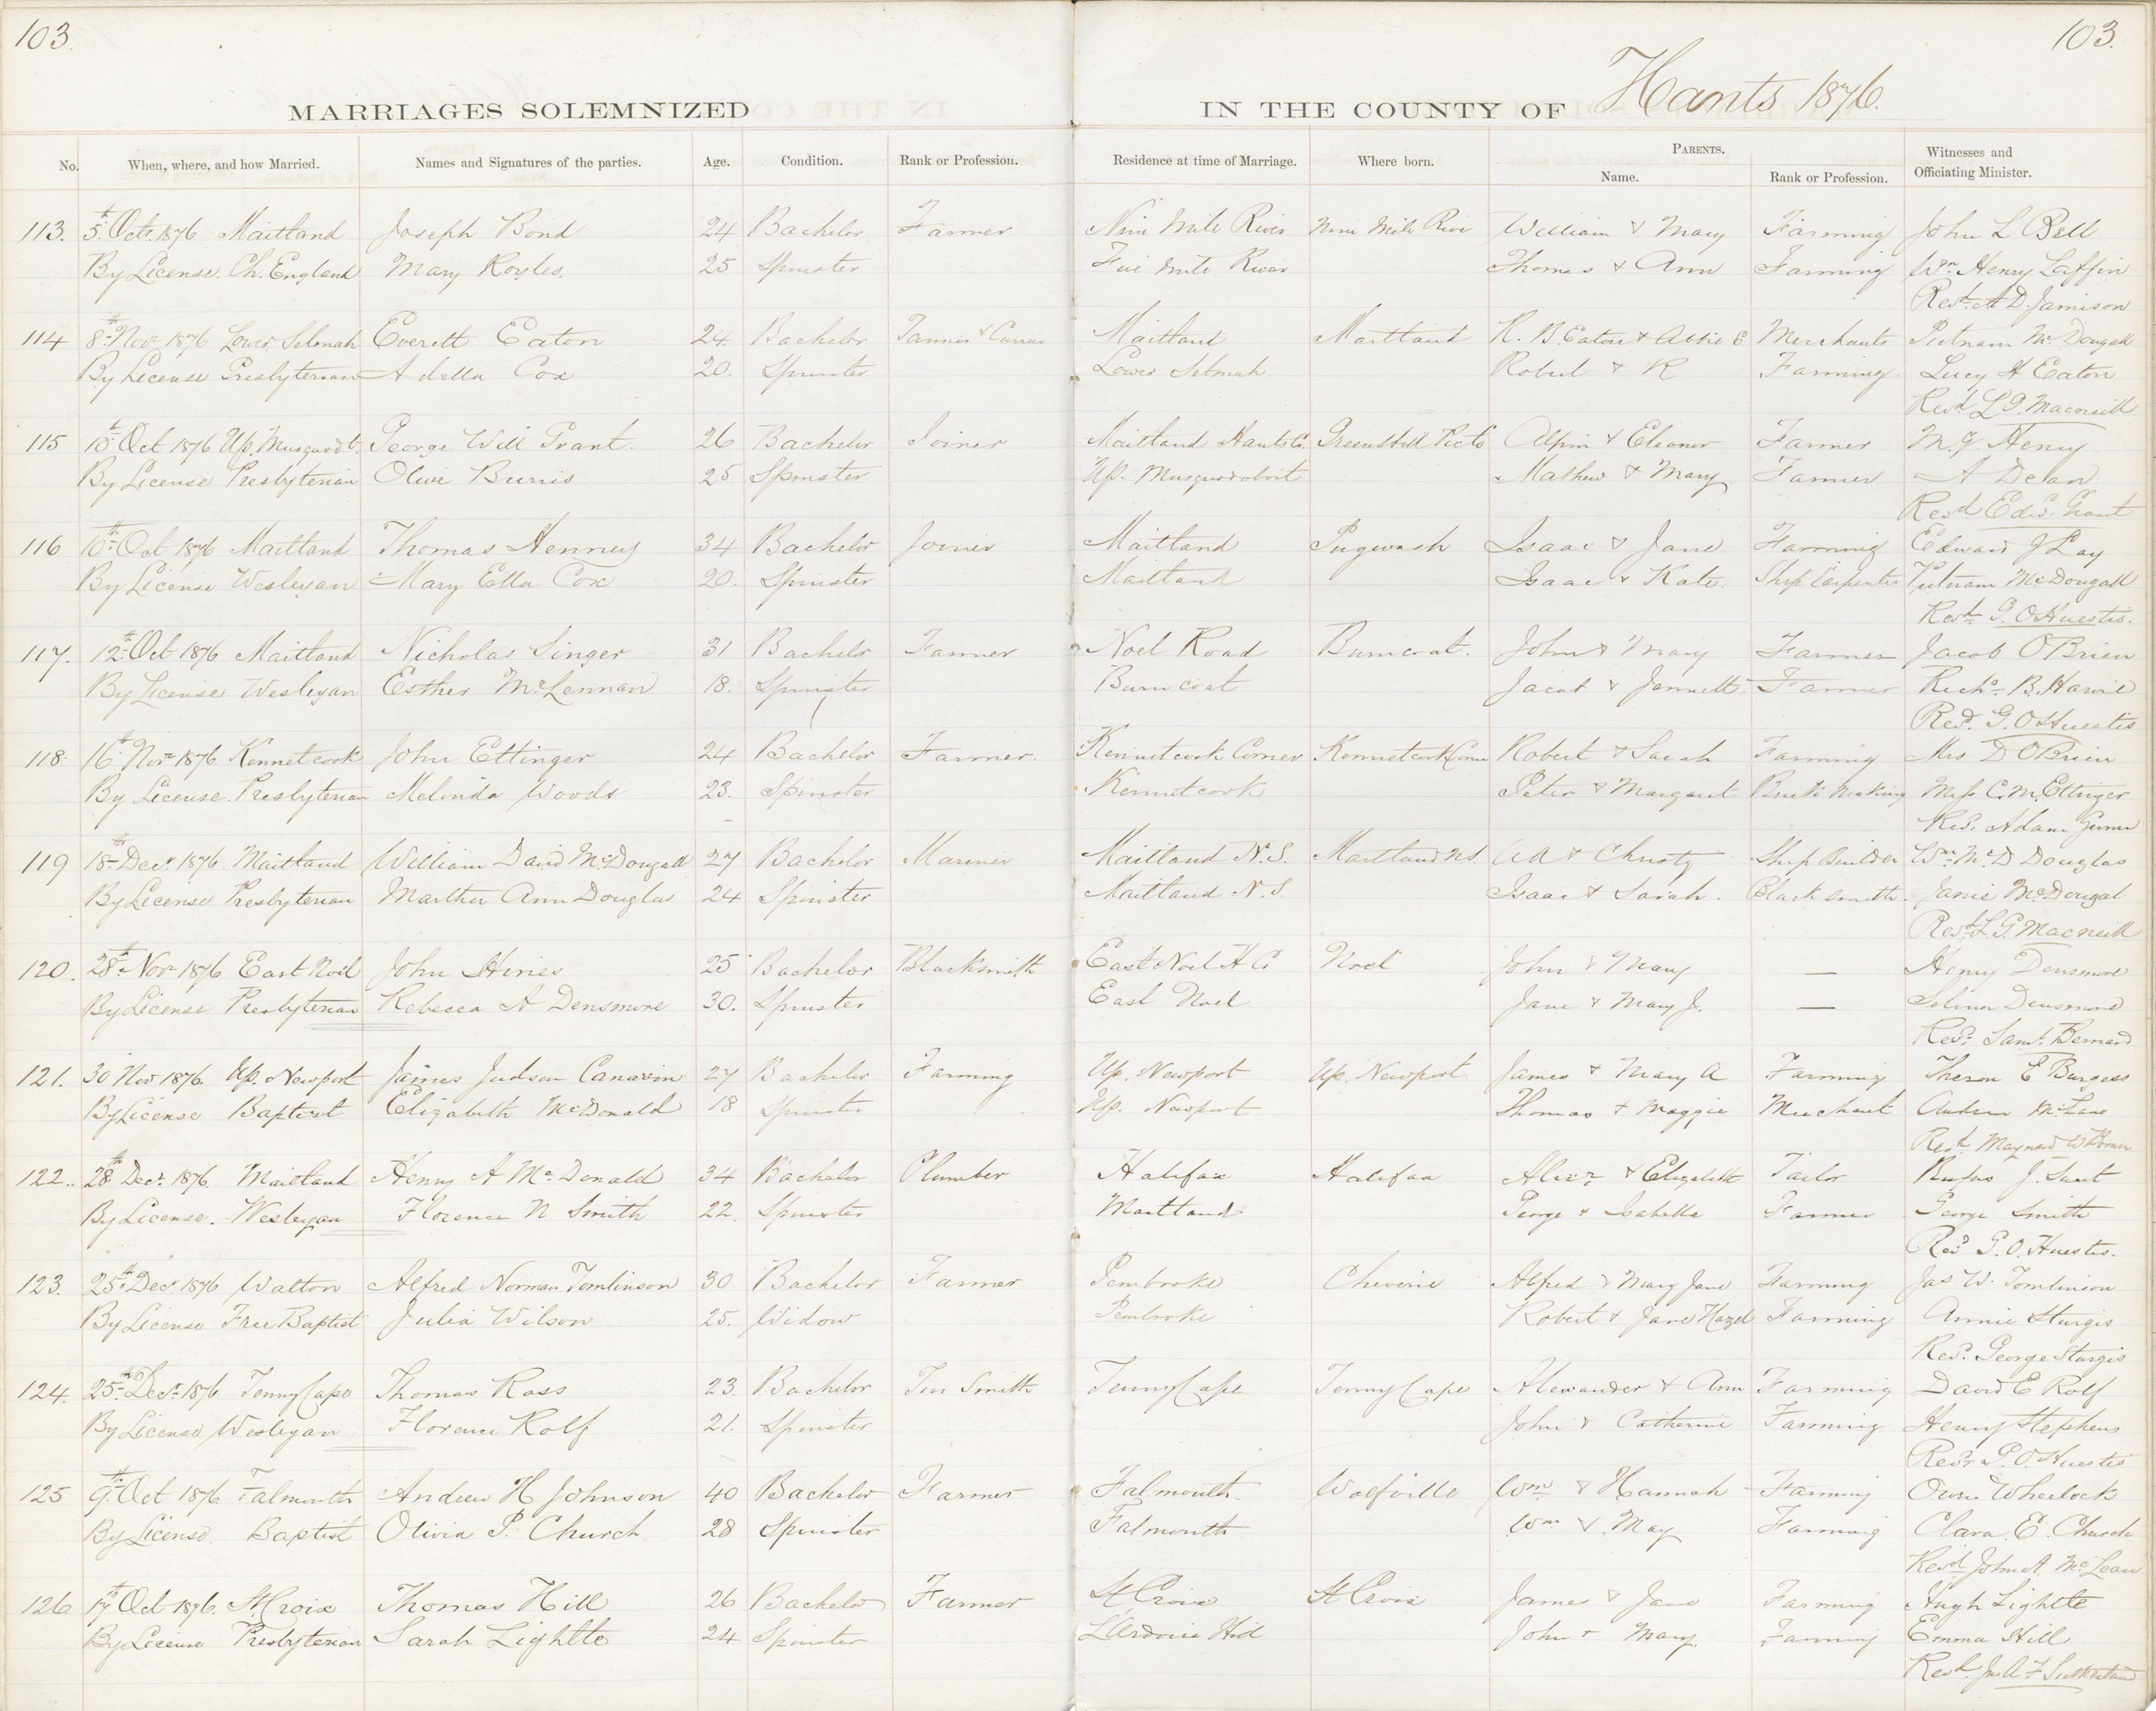 103.
103.
MARRIAGES SOLEMNIZED IN THE COUNTY OF Hants 1876.
No. When, where, and how Married. Names and Signatures of the parties. Age. Condition. Rank or Profession. Residence at time of Marriage. Where born. PARENTS. Witnesses and Officiating Minister.
Name. Rank or Profession.
113. 5th Octr. 1876 Maitland Joseph Bond 24 Bachelor Farmer Nine Mile River Nine Mile River William & Mary Farming John L Bell
By License. Ch. England Mary Royles. 25 Spinster Five Mile River Thomas & Ann Farming Wm Henry Laffin
Revd A D. Jamison
114 8th Novr 1876 Lower Selmah Everett Eaton 24 Bachelor Tanner & Currier Maitland Maitland R. B. Eaton & Abbie E Merchants Putnam McDougall
By License Presbyterian Adella Cox 20. Spinster Lower Selmah Robert & R Farming Lucy A Eaton
Revd L G. Macneill
115 10th Oct 1876 Up. Musquodt. George Will Grant. 26 Bachelor Joiner Maitland Hants Co. Greenhill Picto Alpin & Eleonor Farmer M. J. Henry
By License Presbyterian Olive Burris 25 Spinster Up. Musquodoboit Mathew & Mary Farmer A Dean
Revd. Edw. Grant
116 10th Oct 1876 Maitland Thomas Henney 34 Bachelor Joiner Maitland Pugwash Isaac & Jane Farming Edward J Lay
By License Wesleyan Mary Ella Cox 20. Spinster Maitland Isaac & Kate. Ship Carpenter Putnam McDougall
Revd G. O Huestis.
117. 12th Oct 1876 Maitland Nicholas Singer 31 Bachelr Farmer Noel Road Burncoat. John & Mary Farmer Jacob O'Brien
By License Wesleyan Esther McLennan 18. Spinster Burncoat Jacob & Jennett Farmer Richd B. Harvie
Revd. G. O Huestis
118. 16th Novr 1876. Kennetcook John Ettinger 24 Bachelor Farmer. Kennetcook Corner Kennetcook Corner Robert & Sarah Farming Mrs D O'Brien
By License. Presbyterian Melinda Woods 23. Spinster Kennetcook Peter & Margaret Brick Making Miss C. M. Ettinger
Revd. Adam Gunn
119 18th Decr 1876. Maitland William David McDougall 27 Bachelor Mariner Maitland N.S. Maitland N.S. AA & Christy Ship Builder Wm McD Douglas
By License Presbyterian Marther Ann Douglas 24 Spinster Maitland N.S. Isaac & Sarah. Blacksmith Janie McDougal
Revd L G. Macneill
120. 28th Novr 1876 East Noel John Hines 25 Bachelor Blacksmith East Noel H Co Noel John & Mary — Henry Densmore
By License Presbyterian Rebecca A Densmore 30. Spinster East Noel Jane & Mary J. — Selina Densmore
Revd. Saml. Bernard
121. 30 Nov 1876. Up. Newport James Judson Canavin 27 Bachelor Farming Up. Newport Up. Newport James & Mary A Farming Theron E Burgess
By License Baptist Elizabeth McDonald 18 Spinster Up. Newport Thomas & Maggie Merchant Andrew McLane
Revd Maynard W Brown
122. 28th Decr. 1876. Maitland Henry A McDonald 34 Bachelor Plumber Halifax Halifax Alexr & Elizabeth Tailor Rufus J. Sweet
By License. Wesleyan Florence N Smith 22. Spinster Maitland George & Isabella Farmer George Smith
Revd G. O. Huestis.
123. 25th Decr 1876 Walton Alfred Norman Tomlinson 30 Bachelor Farmer Pembroke Cheverie Alfred & Mary Jane Farming Jas W. Tomlinson
By License Free Baptist Julia Wilson 25. Widow Pembroke Robert & Jane Hazel Farming Annie Sturgis
Revd. George Sturgis
124. 25th Decr 1876 Tenny Cape Thomas Ross 23. Bachelor Tin Smith Tenny Cape Tenny Cape Alexander & Ann Farming David E Rolf
By License Wesleyan Florence Rolf 21. Spinster John & Catherine Farming Henry Stephens
Revd G. O. Huestis
125 9th Oct 1876 Falmouth Andrew H Johnson 40 Bachelor Farmer Falmouth Wolfville Wm & Hannah Farming Owen Wheelock
By License. Baptist Olivia P. Church 28 Spinster Falmouth Wm & May Farming Clara. E. Church
Revd John A. McLean
126 17th Oct 1876. St Croix Thomas Hill 26 Bachelor Farmer St Croix St Croix James & Jane Farming Hugh Lightle
By License Presbyterian Sarah Lightle 24 Spinster L'Ardoise Hill John & Mary Farming Emma Hill
Revd. Jn A F Sutherland